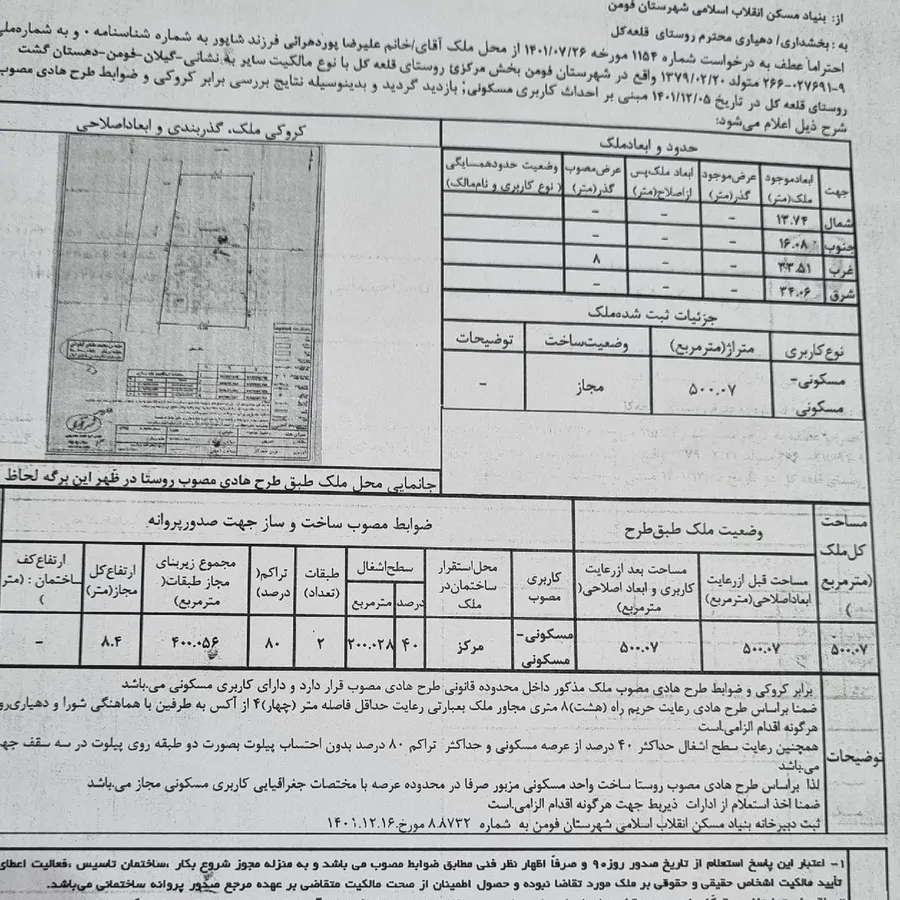 از: بنیاد مسکن انقلاب اسلامی شهرستان فومن
به: بخشداری/دهیاری محترم روستای قلعه‌کل
احتراما عطف به درخواست شماره ۱۱۵۴ مورخه ۱۴۰۱/۰۷/۲۶ از محل ملک آقای/خانم علیرضا پوردهرائی فرزند شاپور به شماره شناسنامه ۰ و به شماره‌ملی
۲۶۶-۰۲۷۶۹۱-۹ متولد ۱۳۷۹/۰۲/۲۰ واقع در شهرستان فومن بخش مرکزی روستای قلعه کل با نوع مالکیت سایر به نشانی-گیلان-فومن-دهستان گشت
روستای قلعه کل در تاریخ ۱۴۰۱/۱۲/۰۵ مبنی بر احداث کاربری مسکونی؛ بازدید گردید و بدینوسیله نتایج بررسی برابر کروکی و ضوابط طرح هادی مصوب
شرح ذیل اعلام می‌شود:
حدود و ابعادملک
کروکی ملک، گذربندی و ابعاداصلاحی
جهت ابعادموجود ملک(متر) عرض‌موجود گذر(متر) ابعاد ملک‌پس ازاصلاح(متر) عرض‌مصوب گذر(متر) وضعیت حدودهمسایگی ( نوع کاربری و نام‌مالک)
شمال ۱۳.۷۴ - - -
جنوب ۱۶.۰۸ - - -
غرب ۳۳.۵۱ - - ۸
شرق ۳۴.۰۶ - - -
جزئیات ثبت شده‌ملک
نوع‌کاربری متراژ(مترمربع) وضعیت‌ساخت توضیحات
مسکونی- مسکونی ۵۰۰.۰۷ مجاز -
جانمایی محل ملک طبق طرح هادی مصوب روستا در ظهر این برگه لحاظ
مساحت کل‌ملک (مترمربع) وضعیت ملک طبق‌طرح ضوابط مصوب ساخت و ساز جهت صدورپروانه
مساحت قبل ازرعایت ابعاداصلاحی(مترمربع) مساحت بعد ازرعایت کاربری و ابعاد اصلاحی(مترمربع) کاربری مصوب محل‌استقرار ساختمان‌در ملک سطح‌اشغال درصد مترمربع طبقات (تعداد) تراکم(درصد) مجموع زیربنای مجاز طبقات(مترمربع) ارتفاع‌کل مجاز(متر) ارتفاع‌کف ساختمان : (متر)
۵۰۰.۰۷ ۵۰۰.۰۷ ۵۰۰.۰۷ مسکونی- مسکونی مرکز ۴۰ ۲۰۰.۰۲۸ ۲ ۸۰ ۴۰۰.۰۵۶ ۸.۴ -
توضیحات
برابر کروکی و ضوابط طرح هادی مصوب ملک مذکور داخل محدوده قانونی طرح هادی مصوب قرار دارد و دارای کاربری مسکونی می.باشد
ضمنا براساس طرح هادی رعایت حریم راه (هشت)۸ متری مجاور ملک بعبارتی رعایت حداقل فاصله متر (چهار)۴ از آکس به طرفین با هماهنگی شورا و دهیاری‌رو
هرگونه اقدام الزامی.است
همچنین رعایت سطح اشغال حداکثر ۴۰ درصد از عرصه مسکونی و حداکثر تراکم ۸۰ درصد بدون احتساب پیلوت بصورت دو طبقه روی پیلوت در سه سقف جه
می.باشد
لذا براساس طرح هادی مصوب روستا ساخت واحد مسکونی مزبور صرفا در محدوده عرصه با مختصات جغرافیایی کاربری مسکونی مجاز می.باشد
ضمنا اخذ استعلام از ادارات ذیربط جهت هرگونه اقدام الزامی.است
ثبت دبیرخانه بنیاد مسکن انقلاب اسلامی شهرستان فومن به شماره ۸۸۷۳۲ مورخ.۱۴۰۱.۱۲.۱۶
۱- اعتبار این پاسخ استعلام از تاریخ صدور ۹۰ روز و صرفاً اظهار نظر فنی مطابق ضوابط مصوب می باشد و به منزله مجوز شروع بکار ،ساختمان تاسیس ،فعالیت اعطای
تأیید مالکیت اشخاص حقیقی و حقوقی بر ملک مورد تقاضا نبوده و حصول اطمینان از صحت مالکیت متقاضی بر عهده مرجع صدور پروانه ساختمانی می‌باشد.